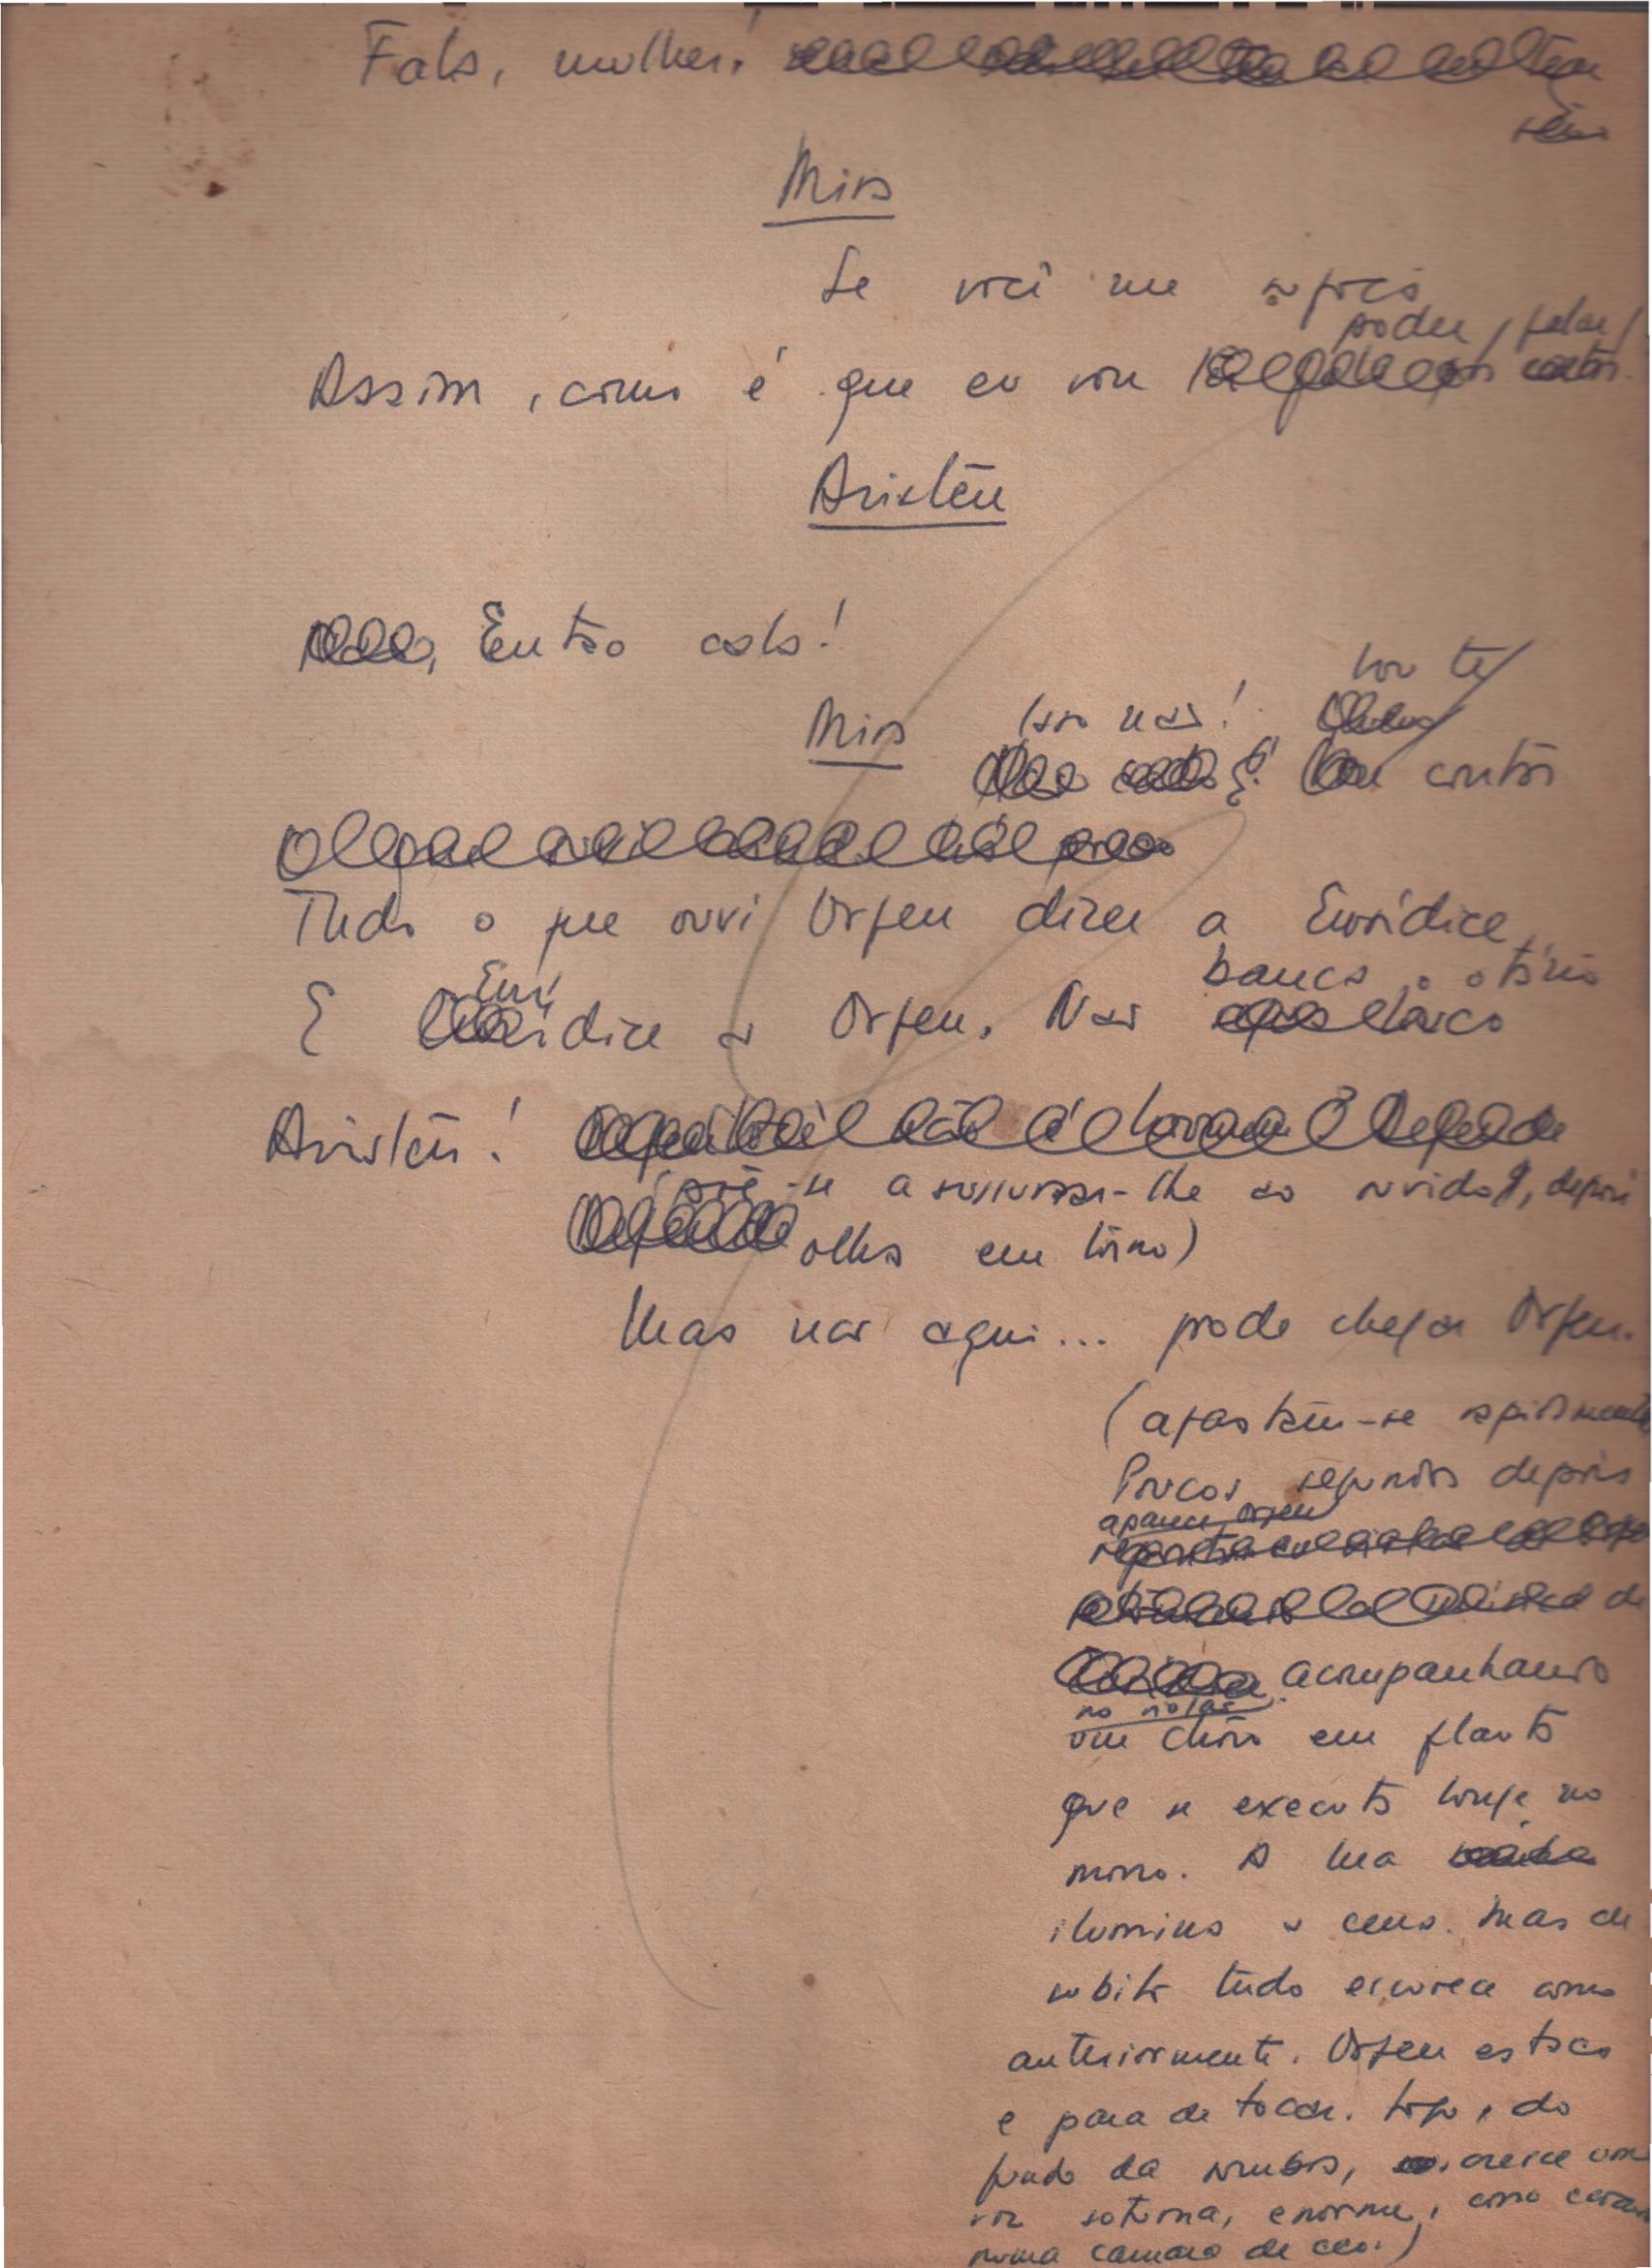 Fala, mulher!
Mira
Se você me sufoca
poder falar
Assim, como é que eu vou
Aristeu
Então cala!
Mira
Isso não! Vou te
contar
Tudo o que ouvi Orfeu dizer a Eurídice
E Eurídice a Orfeu. Não banca o otário
Aristeu!
(põe-se a sussurrar-lhe ao ouvido, depois
olha em tôrno)
Mas não aqui... pode chegar Orfeu.
(afastam-se rapidamente
Poucos segundos depois
aparece Orfeu
acompanhando
no violão
um chôro em flauta
que se executa longe no
morro. A lua
ilumina a cena. Mas de
subito tudo escurece como
anteriormente. Orfeu estaca
e para de tocar. Logo, do
fundo da sombra, cresce uma
voz soturna, enorme, como
numa camara de eco.)